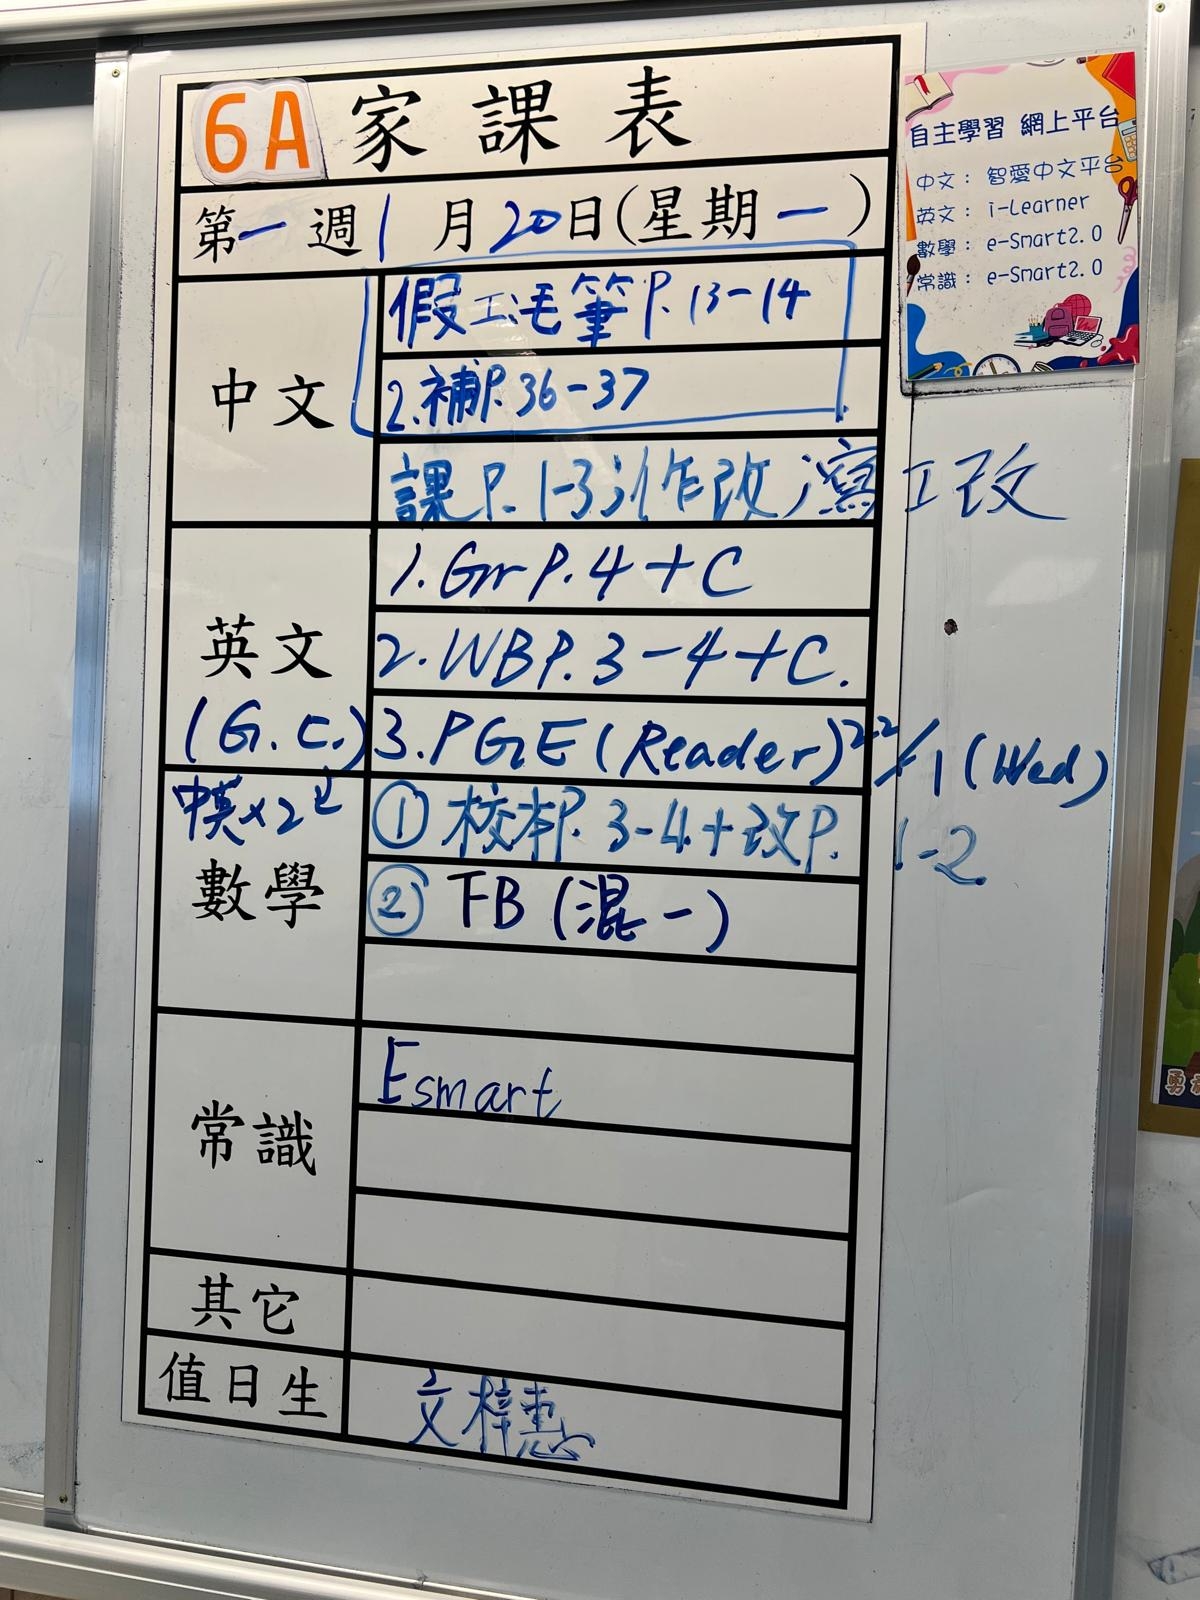 6A 家課表
第一週 1月20日(星期一)
中文
假工:毛筆P.13-14
2.補P.36-37
課P.1-3 作改 寫工改
英文
(G.C.)
1.Gr P.4+C
2.WB P.3-4+C.
3.PGE(Reader) 22/1(Wed)
中英×2
數學
① 校本P.3-4+改P.1-2
② FB(混一)
常識
Esmart
其它
值日生
文梓惠
自主學習 網上平台
中文: 智愛中文平台
英文: i-Learner
數學: e-Smart2.0
常識: e-Smart2.0